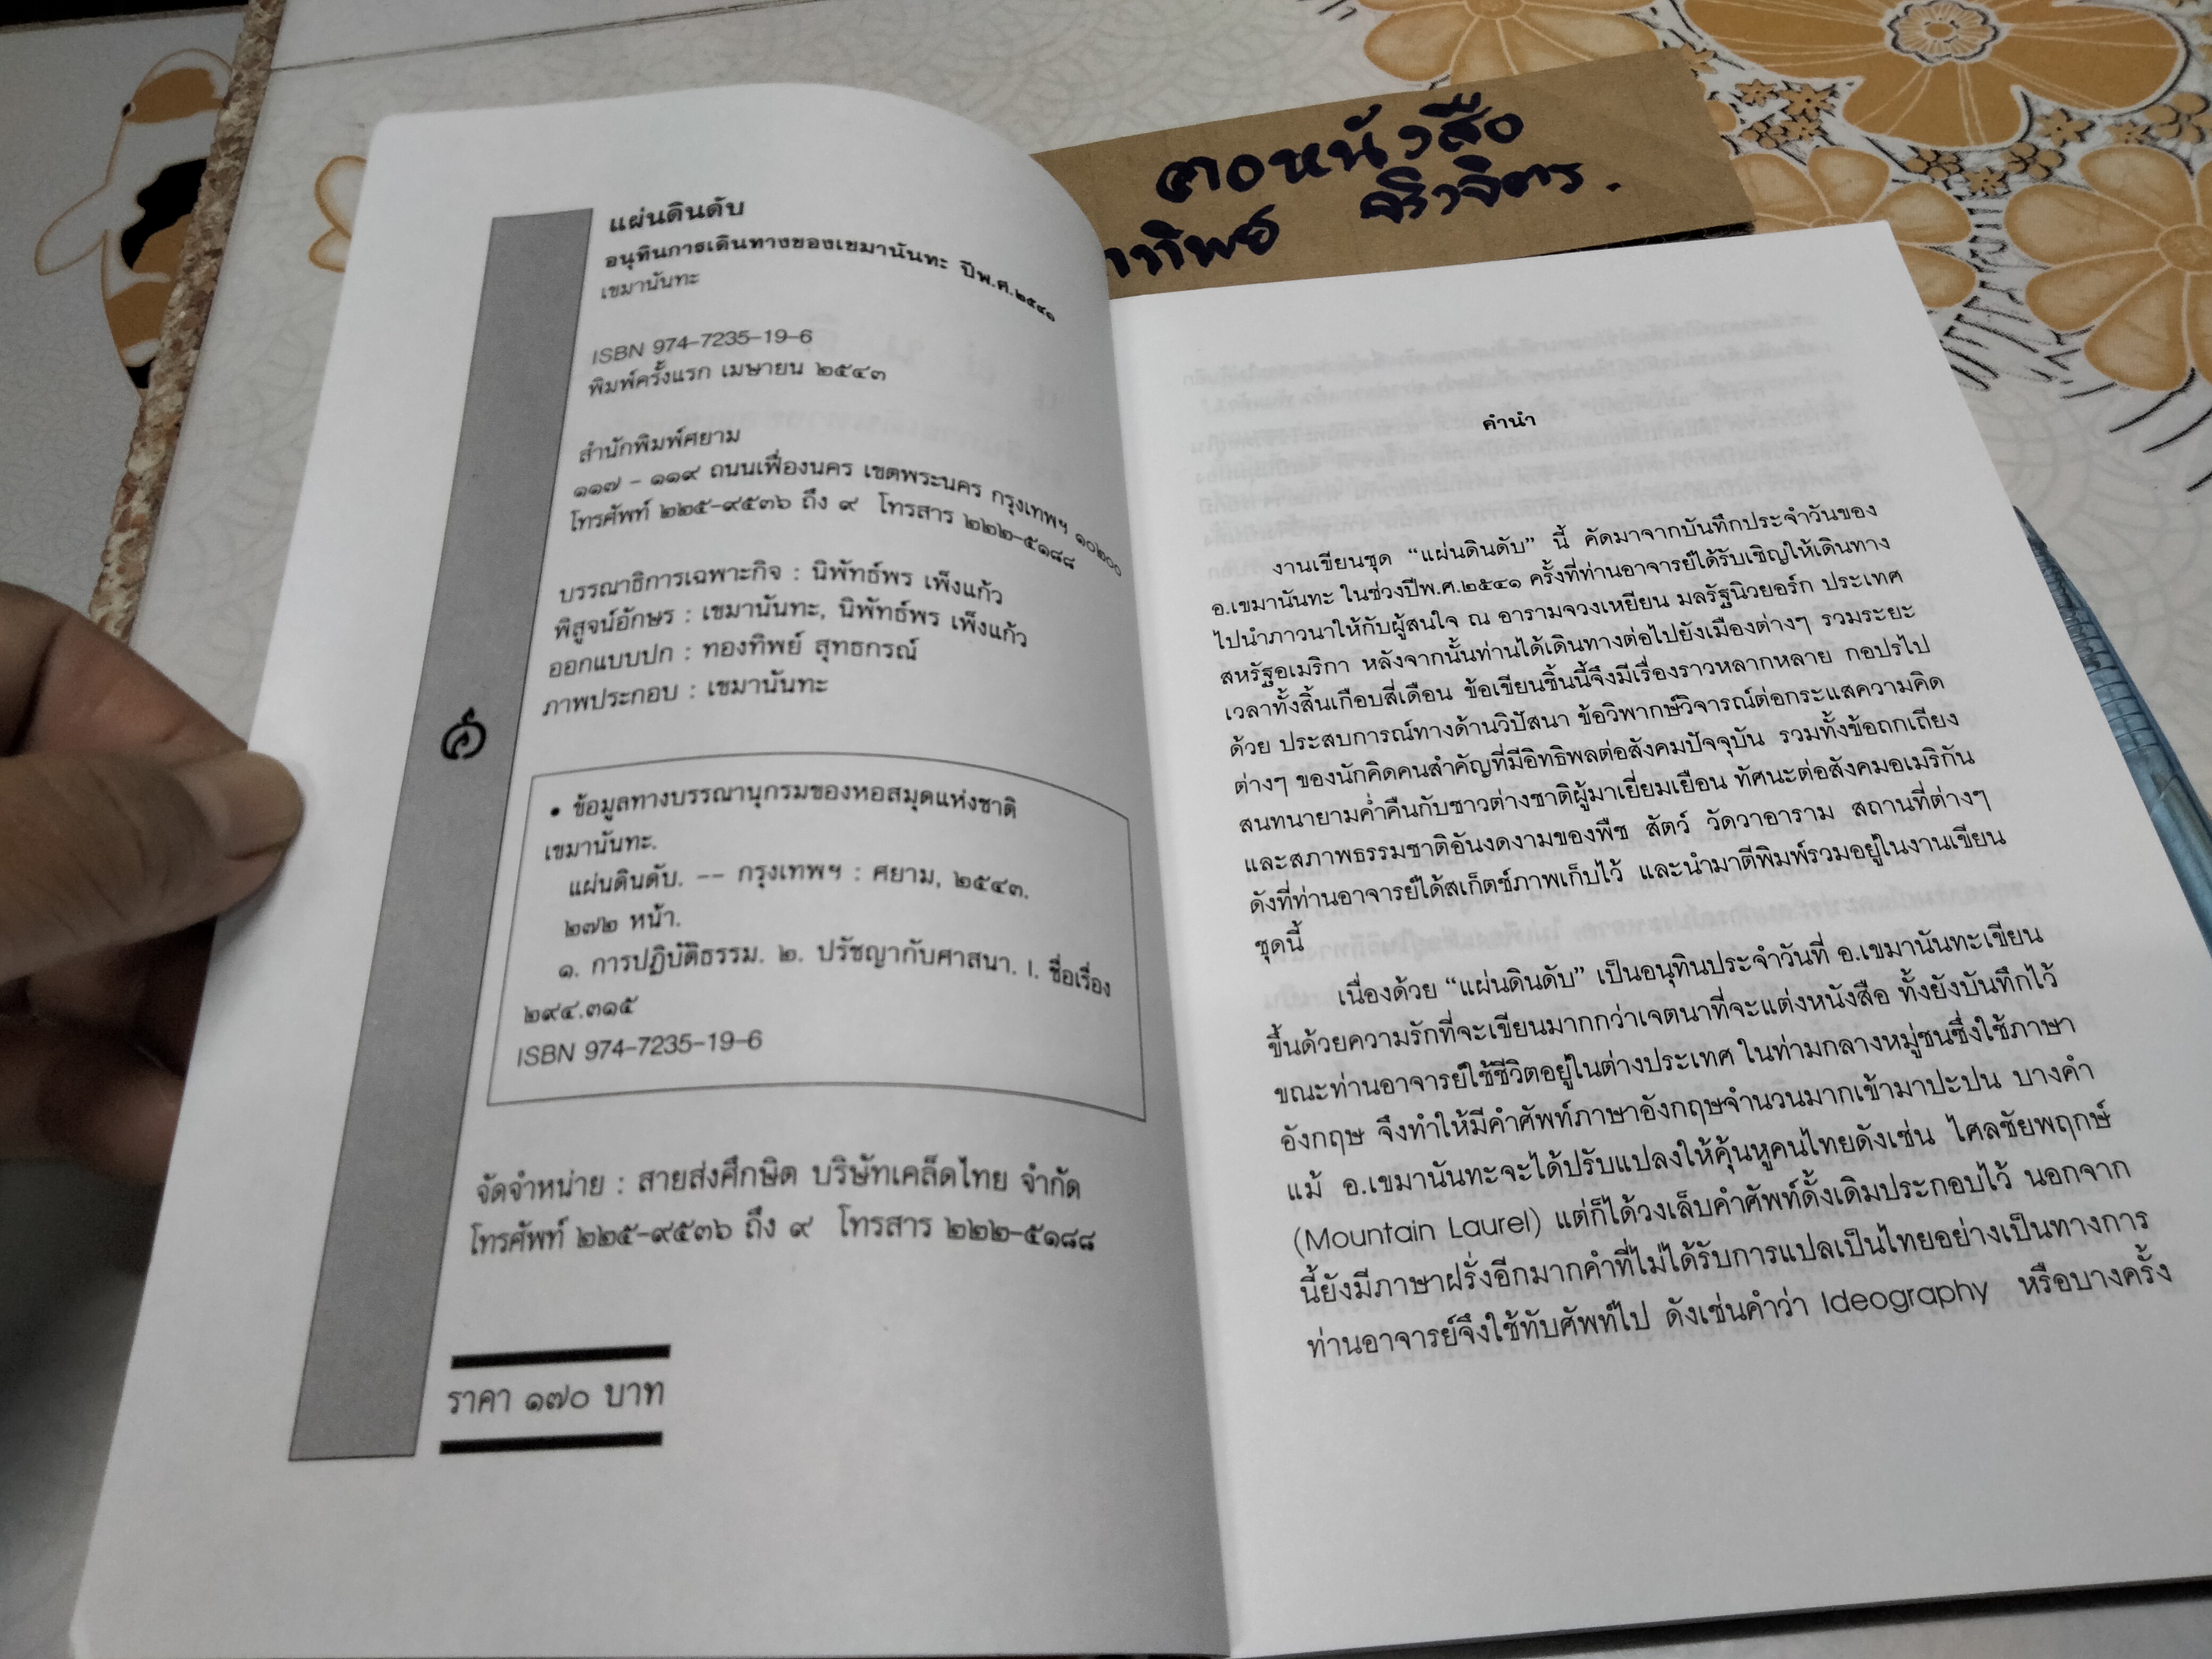 แผ่นดินดับ
อนุทินการเดินทางของเขมานันทะ ปีพ.ศ.๒๕๔๑
เขมานันทะ
ISBN 974-7235-19-6
พิมพ์ครั้งแรก เมษายน ๒๕๔๓
สำนักพิมพ์ศยาม
๑๑๗ - ๑๑๙ ถนนเฟื่องนคร เขตพระนคร กรุงเทพฯ ๑๐๒๐๐
โทรศัพท์ ๒๒๕-๙๕๓๖ ถึง ๙ โทรสาร ๒๒๒-๕๑๘๘
บรรณาธิการเฉพาะกิจ : นิพัทธ์พร เพ็งแก้ว
พิสูจน์อักษร : เขมานันทะ, นิพัทธ์พร เพ็งแก้ว
ออกแบบปก : ทองทิพย์ สุทธกรณ์
ภาพประกอบ : เขมานันทะ
• ข้อมูลทางบรรณานุกรมของหอสมุดแห่งชาติ
เขมานันทะ.
แผ่นดินดับ. -- กรุงเทพฯ : ศยาม, ๒๕๔๓.
๒๗๒ หน้า.
๑. การปฏิบัติธรรม. ๒. ปรัชญากับศาสนา. I. ชื่อเรื่อง
๒๙๔.๓๑๕
ISBN 974-7235-19-6
จัดจำหน่าย : สายส่งศึกษิต บริษัทเคล็ดไทย จำกัด
โทรศัพท์ ๒๒๕-๙๕๓๖ ถึง ๙ โทรสาร ๒๒๒-๕๑๘๘
ราคา ๑๗๐ บาท
คอหนังสือ
คำนำ
งานเขียนชุด “แผ่นดินดับ” นี้ คัดมาจากบันทึกประจำวันของ
อ.เขมานันทะ ในช่วงปีพ.ศ.๒๕๔๑ ครั้งที่ท่านอาจารย์ได้รับเชิญให้เดินทาง
ไปนำภาวนาให้กับผู้สนใจ ณ อารามจวงเหยียน มลรัฐนิวยอร์ก ประเทศ
สหรัฐอเมริกา หลังจากนั้นท่านได้เดินทางต่อไปยังเมืองต่างๆ รวมระยะ
เวลาทั้งสิ้นเกือบสี่เดือน ข้อเขียนชิ้นนี้จึงมีเรื่องราวหลากหลาย กอปรไป
ด้วย ประสบการณ์ทางด้านวิปัสนา ข้อวิพากษ์วิจารณ์ต่อกระแสความคิด
ต่างๆ ของนักคิดคนสำคัญที่มีอิทธิพลต่อสังคมปัจจุบัน รวมทั้งข้อถกเถียง
สนทนายามค่ำคืนกับชาวต่างชาติผู้มาเยี่ยมเยือน ทัศนะต่อสังคมอเมริกัน
และสภาพธรรมชาติอันงดงามของพืช สัตว์ วัดวาอาราม สถานที่ต่างๆ
ดังที่ท่านอาจารย์ได้สเก็ตช์ภาพเก็บไว้ และนำมาตีพิมพ์รวมอยู่ในงานเขียน
ชุดนี้
เนื่องด้วย “แผ่นดินดับ” เป็นอนุทินประจำวันที่ อ.เขมานันทะเขียน
ขึ้นด้วยความรักที่จะเขียนมากกว่าเจตนาที่จะแต่งหนังสือ ทั้งยังบันทึกไว้
ขณะท่านอาจารย์ใช้ชีวิตอยู่ในต่างประเทศ ในท่ามกลางหมู่ชนซึ่งใช้ภาษา
อังกฤษ จึงทำให้มีคำศัพท์ภาษาอังกฤษจำนวนมากเข้ามาปะปน บางคำ
แม้ อ.เขมานันทะจะได้ปรับแปลงให้คุ้นหูคนไทยดังเช่น ไศลชัยพฤกษ์
(Mountain Laurel) แต่ก็ได้วงเล็บคำศัพท์ดั้งเดิมประกอบไว้ นอกจาก
นี้ยังมีภาษาฝรั่งอีกมากคำที่ไม่ได้รับการแปลเป็นไทยอย่างเป็นทางการ
ท่านอาจารย์จึงใช้ทับศัพท์ไป ดังเช่นคำว่า Ideography หรือบางครั้ง